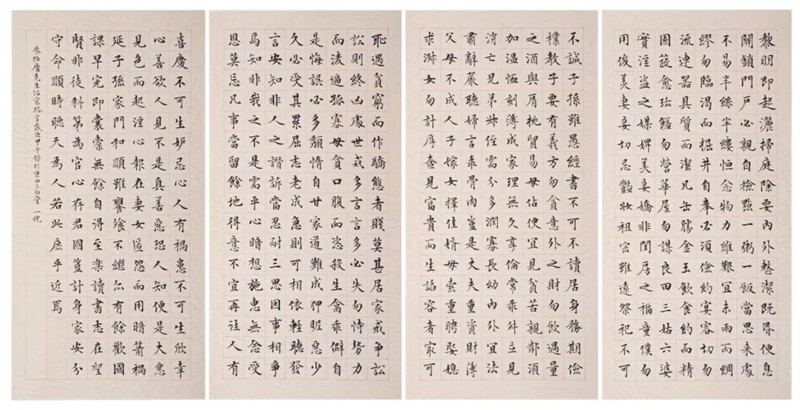 黎明即起灑掃庭除要內外整潔既昏便息
關鎖門戶必親自檢點一粥一飯當思來處
不易半絲半縷恒念物力維艱宜未雨而綢
繆勿臨渴而掘井自奉必須儉約宴客切勿
流連器具質而潔瓦缶勝金玉飲食約而精
園蔬愈珍饈勿營華屋勿謀良田三姑六婆
實淫盜之媒婢美妾嬌非閨房之福童僕勿
用俊美妻妾切忌豔妝祖宗雖遠祭祀不可
不誠子孫雖愚經書不可不讀居身務期儉
樸教子要有義方勿貪意外之財勿飲過量
之酒與肩挑貿易毋佔便宜見貧苦親鄰須
加溫恤刻薄成家理無久享倫常乖舛立見
消亡兄弟叔侄需分多潤寡長幼內外宜法
肅辭嚴聽婦言乖骨肉豈是丈夫重資財薄
父母不成人子嫁女擇佳婿毋索重聘娶媳
求淑女勿計厚奩見富貴而生諂容者最可
恥遇貧窮而作驕態者賤莫甚居家戒爭訟
訟則終凶處世戒多言言多必失勿恃勢力
而淩逼孤寡毋貪口腹而恣殺生禽乖僻自
是悔誤必多頹惰自甘家道難成狎暱惡少
久必受其累屈志老成急則可相依輕聽發
言安知非人之譖訴當忍耐三思因事相爭
焉知非我之不是需平心暗想施惠無念受
恩莫忘凡事當留餘地得意不宜再往人有
喜慶不可生妒忌心人有禍患不可生欣幸
心善欲人見不是真善惡恐人知便是大惡
見色而起淫心報在妻女匿怨而用暗箭禍
延子孫家門和順雖饔飧不繼亦有餘歡國
課早完即囊橐無餘自得至樂讀書志在聖
賢非徒科第為官心存君國豈計身家安分
守命順時聽天為人若此庶乎近焉
朱柏廬先生治家格言歲次甲午